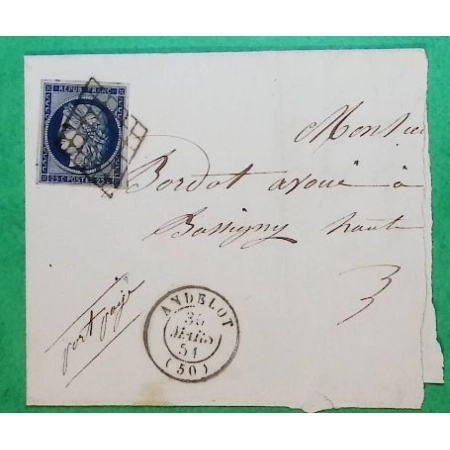 REPUB. FRANC.
25 C. POSTE 25 C.
Monsieu
Bordot avoué à
Bassigny haute
3
port payé
ANDELOT
MARS
51
(50)